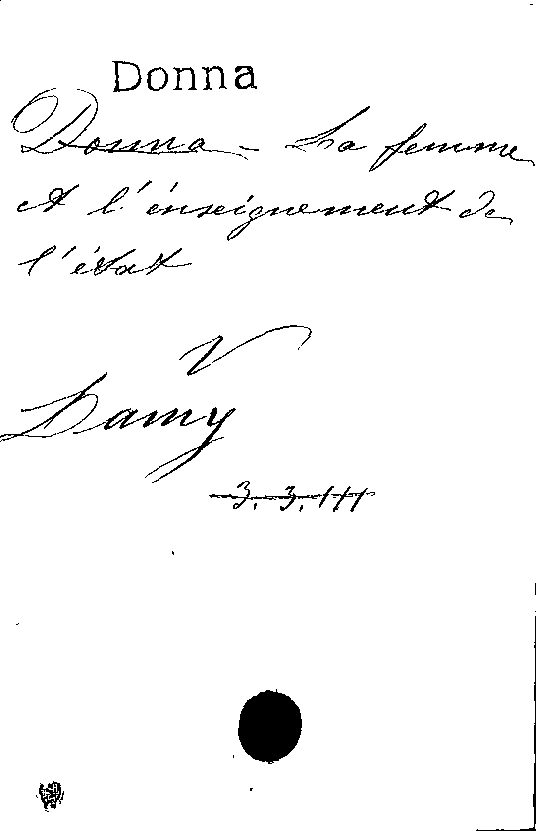 Donna
Donna - La femme
et l'énseignement de
l'état
V
Lamy
3.3.111